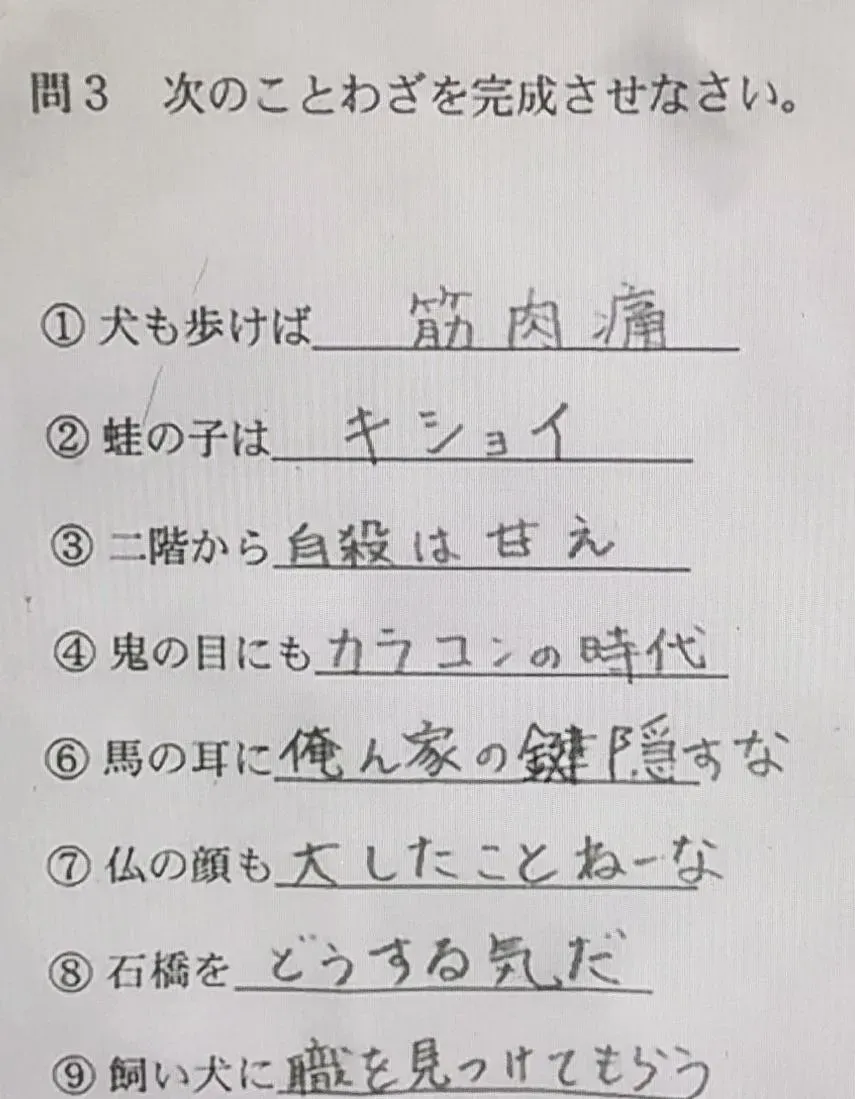 問3 次のことわざを完成させなさい。
①犬も歩けば筋肉痛
②蛙の子はキショイ
③二階から自殺は甘え
④鬼の目にもカラコンの時代
⑥馬の耳に俺ん家の鍵隠すな
⑦仏の顔も大したことねーな
⑧石橋をどうする気だ
⑨飼い犬に職を見つけてもらう